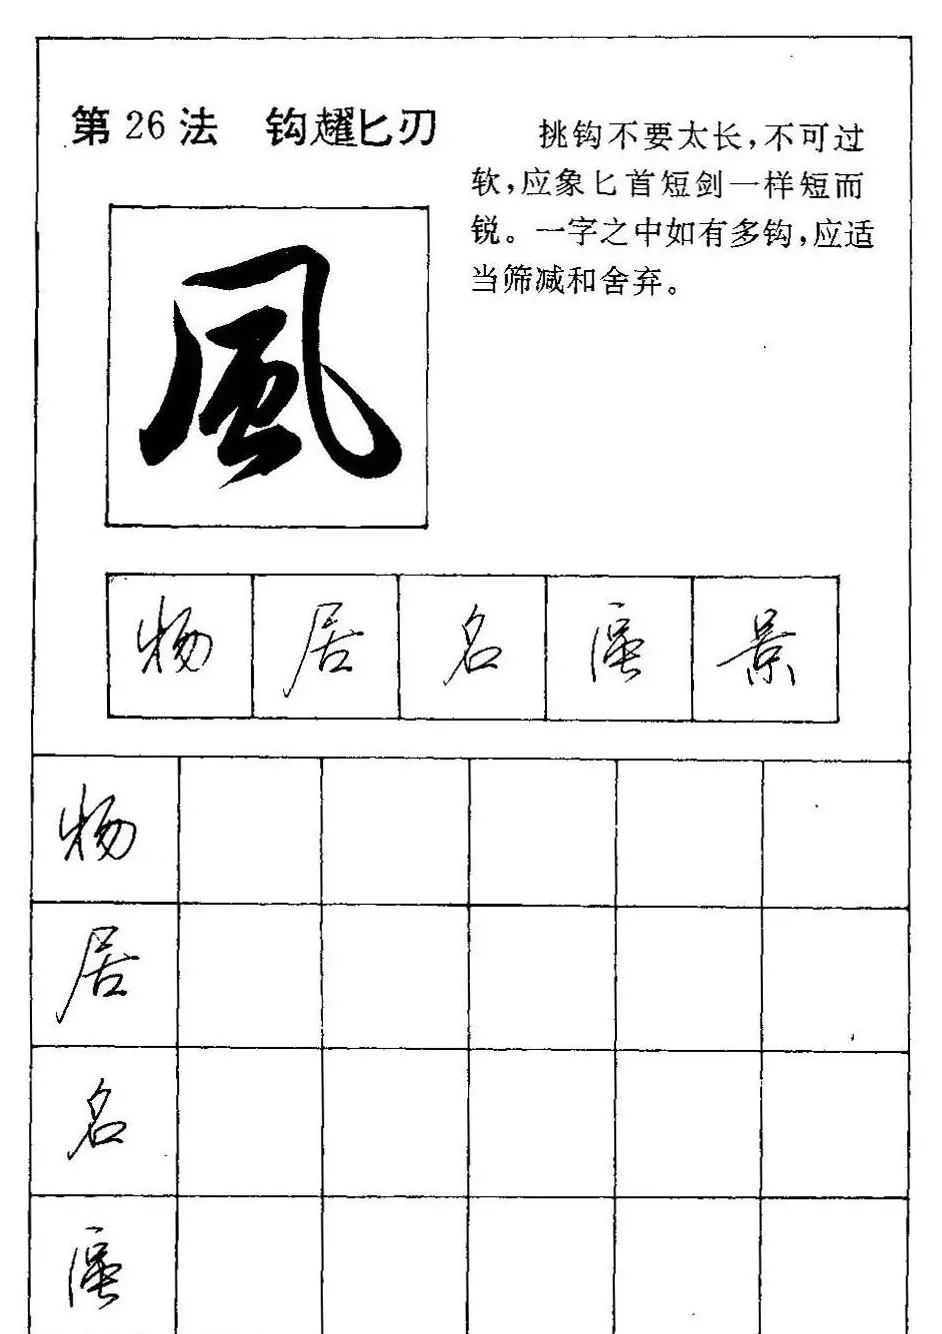 第26法 钩趯匕刃
挑钩不要太长，不可过
软，应象匕首短剑一样短而
锐。一字之中如有多钩，应适
当筛减和舍弃。
風
物 居 名 景
物
居
名